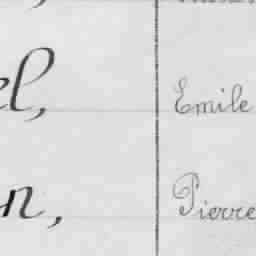 el, Emile
n, Pierre